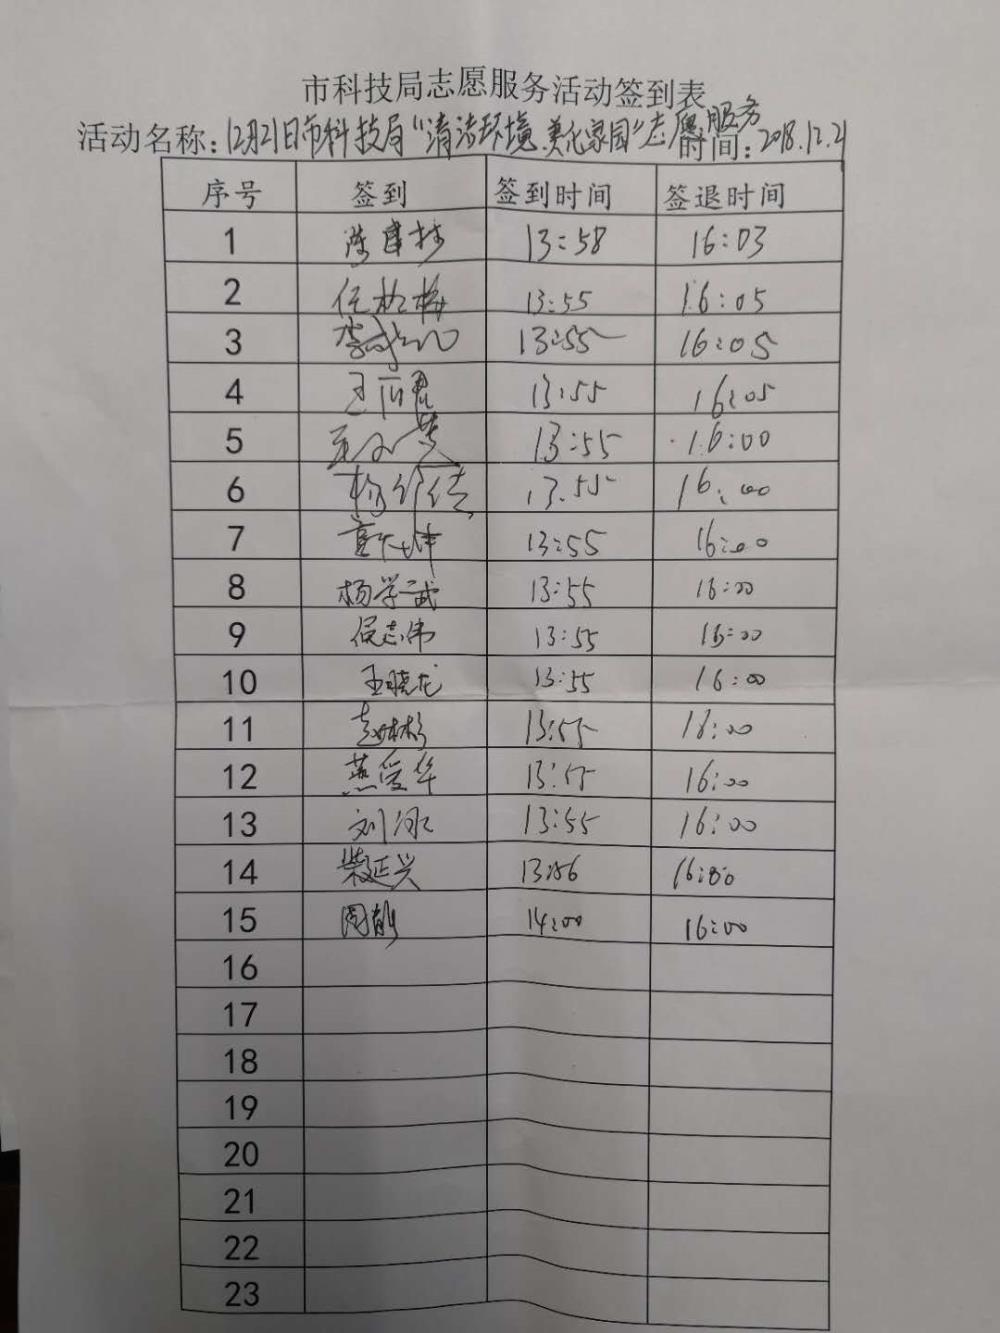 市科技局志愿服务活动签到表
活动名称:12月21日市科技局"清洁环境.美化家园"志愿服务 时间:2018.12.21
序号 签到 签到时间 签退时间
1 13:58 16:03
2 任桂梅 13:55 16:05
3 13:55 16:05
4 王丽君 13:55 16:05
5 13:55 16:00
6 13.55 16:00
7 13:55 16:00
8 杨学武 13:55 16:00
9 侯志伟 13:55 16:00
10 王晓龙 13:55 16:00
11 13:55 16:00
12 燕爱华 13:55 16:00
13 刘冰 13:55 16:00
14 柴延兴 13:56 16:00
15 14:00 16:00
16
17
18
19
20
21
22
23